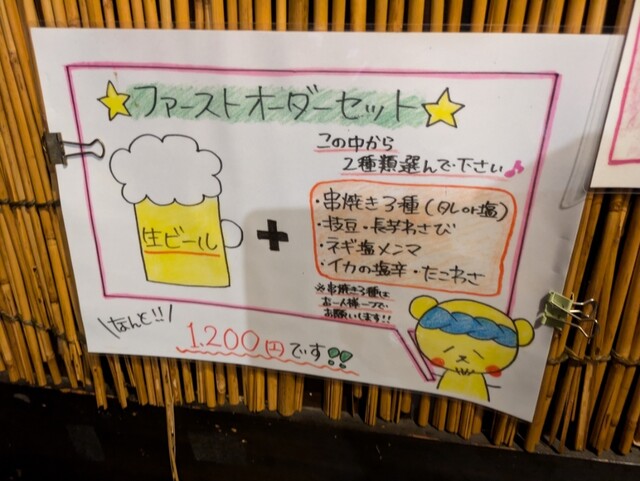 ファーストオーダーセット
この中から
2種類選んで下さい♪
生ビール
+
・串焼き3種(タレor塩)
・枝豆・長芋わさび
・ネギ塩メンマ
・イカの塩辛・たこわさ
※串焼き3種は
お一人様一つで
お願いします!!
なんと!!
1,200円です!!